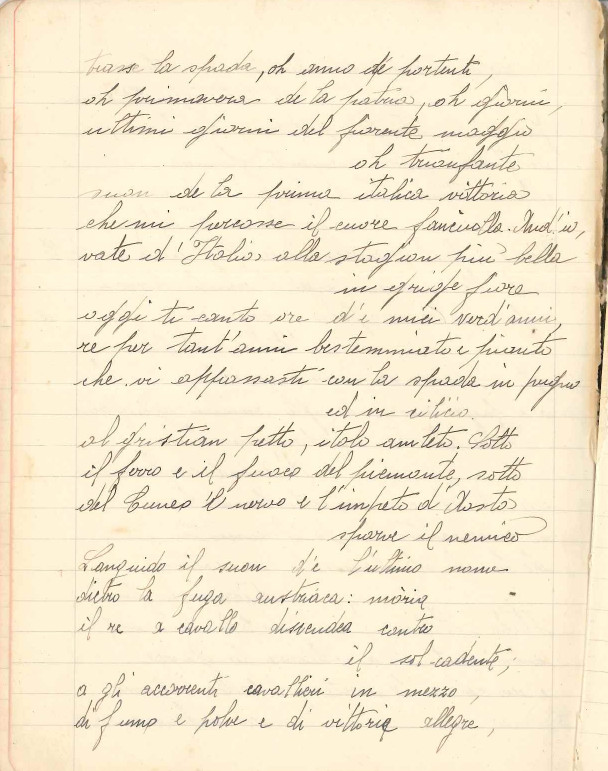 trasse la spada, oh anno de portenti,
oh primavera de la patria, oh giorni,
ultimi giorni del fiorente maggio
oh trionfante
suon de la prima italica vittoria
che mi percosse il cuore fanciullo. Ond'io,
vate d'Italia alla stagion più bella
in grige fiore
oggi ti canto ore d'e miei verd'anni,
re per tant'anni bestemmiato e pianto
che vi appassasti con la spada in pugno
ed in cilicio
al gristian petto, italo amleto. Sotto
il ferro e il fuoco del piemonte, sotto
del Cuneo 'l nervo e l'impeto d'Aosta
sparve il nemico
Languido il suon d'e l'ultimo
dietro la fuga austriaca: moria
il re a cavallo discendea contro
il sol cadente;
a gli accorrenti cavallieri in mezzo,
di fumo e polve e di vittoria allegre,